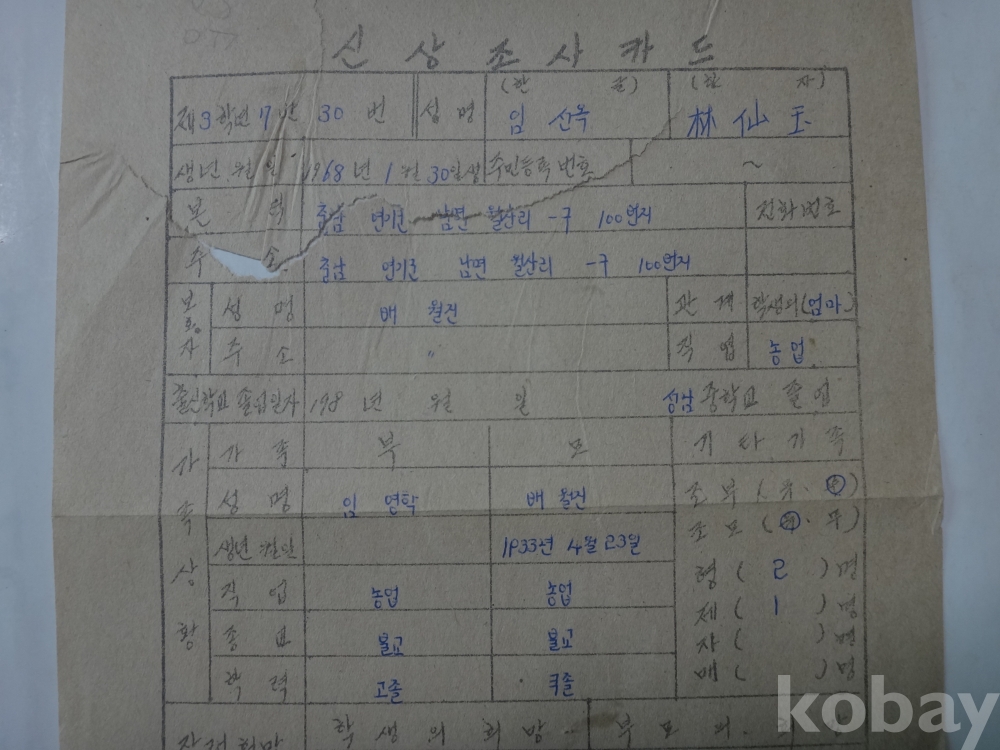 신 상 조 사 카 드
제3학년 7반 30 번 성 명 (한 글) 임 선옥 (한 자) 林 仙 玉
생년 월 일 1968 년 1 월 30일생 주민등록 번호 ~
본 적 충남 연기군 남면 월산리 -구 100번지 전화번호
주 소 충남 연기군 남면 월산리 -구 100번지
보호자 성 명 배 월진 관 계 학생의 (엄마)
주 소 〃 직 업 농업
출신학교 졸업일자 198 년 월 일 성남 중학교 졸 업
가 족 상 황 가 족 부 모 기 타 가 족
성 명 임 영학 배 월진 조 부 (유 · 무)
조 모 (유 · 무)
생년 월일 1933년 4월 23일
형 ( 2 ) 명
직 업 농업 농업
제 ( 1 ) 명
종 교 불교 불교
자 ( ) 명
매 ( ) 명
학 력 고졸 국졸
학 생 의 희 망 부 모 의
kobay